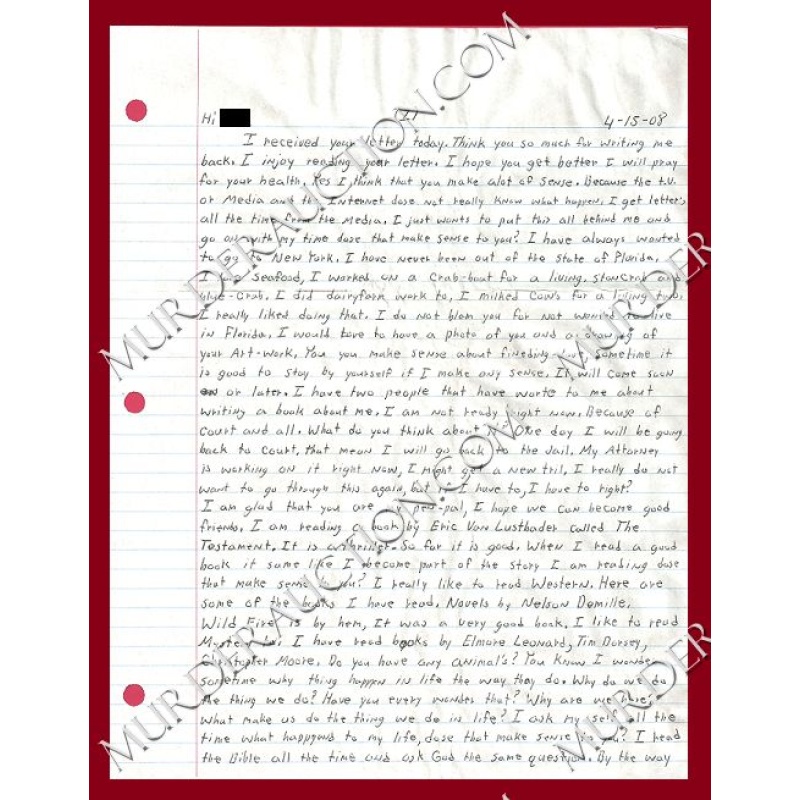 Hi (I) 4-15-08
I received your letter today. Think you so much for writing me
back. I injoy reading your letter. I hope you get better I will pray
for your health. Yes I think that you make alot of sense. Because the t.v.
or Media and the Internet dose not really know what happen. I get letter's
all the time from the Media. I just wants to put this all behind me and
go on with my time dose that make sense to you? I have always wonted
to go to New York. I have never been out of the state of Florida.
I Seafood, I worked on a Crab-boat for a living. StonCrab and
blue-Crab. I did dairyfarm work to, I milked Cows for a living two.
I really liked doing that. I do not blam you for not to live
in Florida. I would love to have a photo of you and a drawing of
your Art-Work. You you make sense about sometime it
is good to stay by yourself if I make any sense. It will come soon
or later. I have two people that have worte to me about
writing a book about me. I am not ready right now. Because of
court and all. What do you think about One day I will be going
back to court, that mean I will go back to the Jail. My Attorney
is working on it right now, I might get a new tril, I really do not
want to go through this again, but if I have to, I have to right?
I am glad that you are pen-pal, I hope we can become good
friends. I am reading a book by Eric Van Lustbader called The
Testament. It is So for it is good. When I read a good
book it same like I become part of the story I am reading dose
that make sense to you? I really like to read Western. Here are
some of the books I have read. Novels by Nelson Demille.
Wild Fire is by hem, It was a very good book. I like to read
I have read books by Elmore Leonard, Tim Dorsey,
Christopher Moore. Do you have any animal's? You Know I wonder
sometime why thing happen in life the way they do. Why do we do
the thing we do? Have you every wonder that? Why are we here?
What make us do the thing we do in life? I ask my self all the
time what happyend to my life, dose that make sense to you? I read
the Bible all the time and ask God the same question. By the way
MURDERAUCTION.COM
MURDERAUCTION.COM